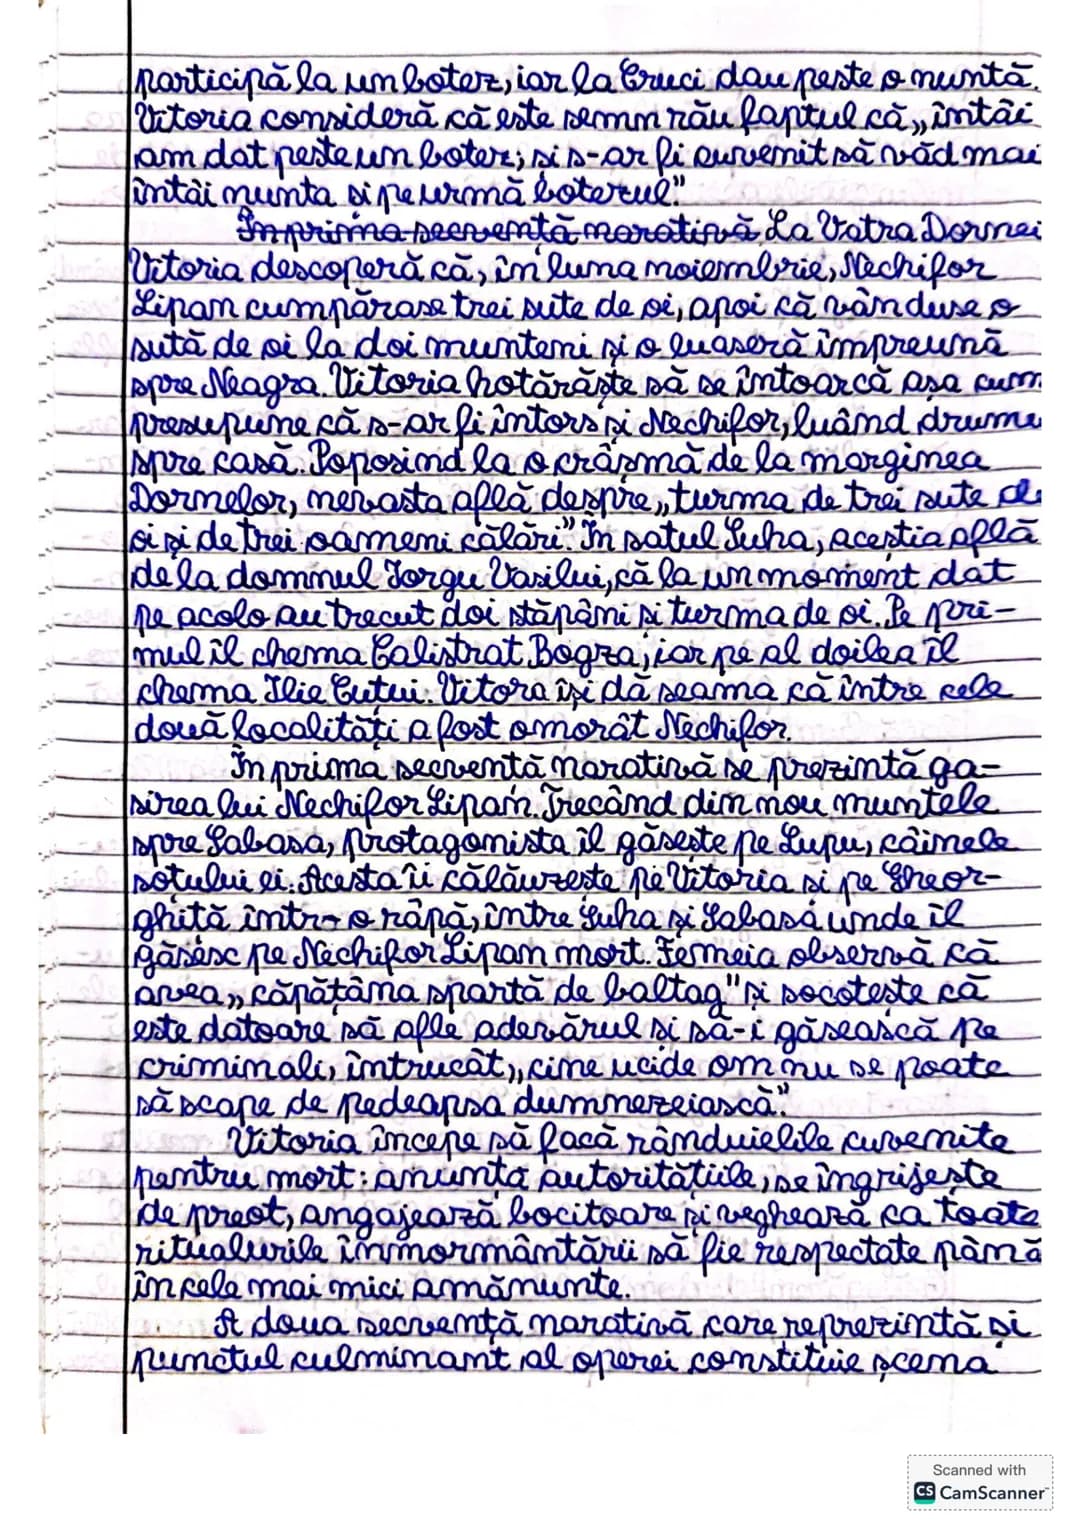 participă la un botez, iar la Cruci dau peste o nuntă.
Vitoria consideră că este semn rău faptul că „întâi
am dat peste un botez; și s-ar fi cuvenit să văd mai
întâi nunta și pe urmă botezul."
In prima secvență narativă La Vatra Dornei
Vitoria descoperă că, în luna noiembrie, Nechifor
Lipan cumpărase trei sute de oi, apoi că vânduse o
sută de oi la doi munteni și o luaseră împreună
spre Neagra. Vitoria hotărăște să se întoarcă așa cum
presupune că s-ar fi întors și Nechifor, luând drumu
spre casă. Poposind la o crâșmă de la marginea
Dornelor, nevasta află despre „turma de trei sute de
oi și de trei oameni călări". În satul Suha, aceștia află
de la domnul Iorgu Vasilui, că la un moment dat
pe acolo au trecut doi stăpâni și turma de oi. Pe pri-
mul îl chema Calistrat Bogza, iar pe al doilea îl
chema Ilie Cuțui. Vitora își dă seama că între cele
două localități a fost omorât Nechifor.
În prima secvență narativă se prezintă gă-
sirea lui Nechifor Lipan. Trecând din nou muntele
spre Sabasa, protagonista îl găsește pe Lupu, câinele
soțului ei. Acesta îi călăuzește pe Vitoria și pe Gheor-
ghiță într-o râpă, între Suha și Sabasa unde îl
găsesc pe Nechifor Lipan mort. Femeia observă că
avea „căpățâna spartă de baltag" și socotește că
este datoare să afle adevărul și să-i găsească pe
criminali, întrucât „cine ucide om nu se poate
să scape de pedeapsa dumnezeiască."
Vitoria începe să facă rânduielile cuvenite
pentru mort: anunță autoritățiile, se îngrijește
de preot, angajează bocitoare și veghează ca toate
ritualurile înmormântării să fie respectate până
în cele mai mici amănunte.
A doua secvență narativă care reprezintă și
punctul culminant al operei constituie scena
Scanned with
CS CamScanner